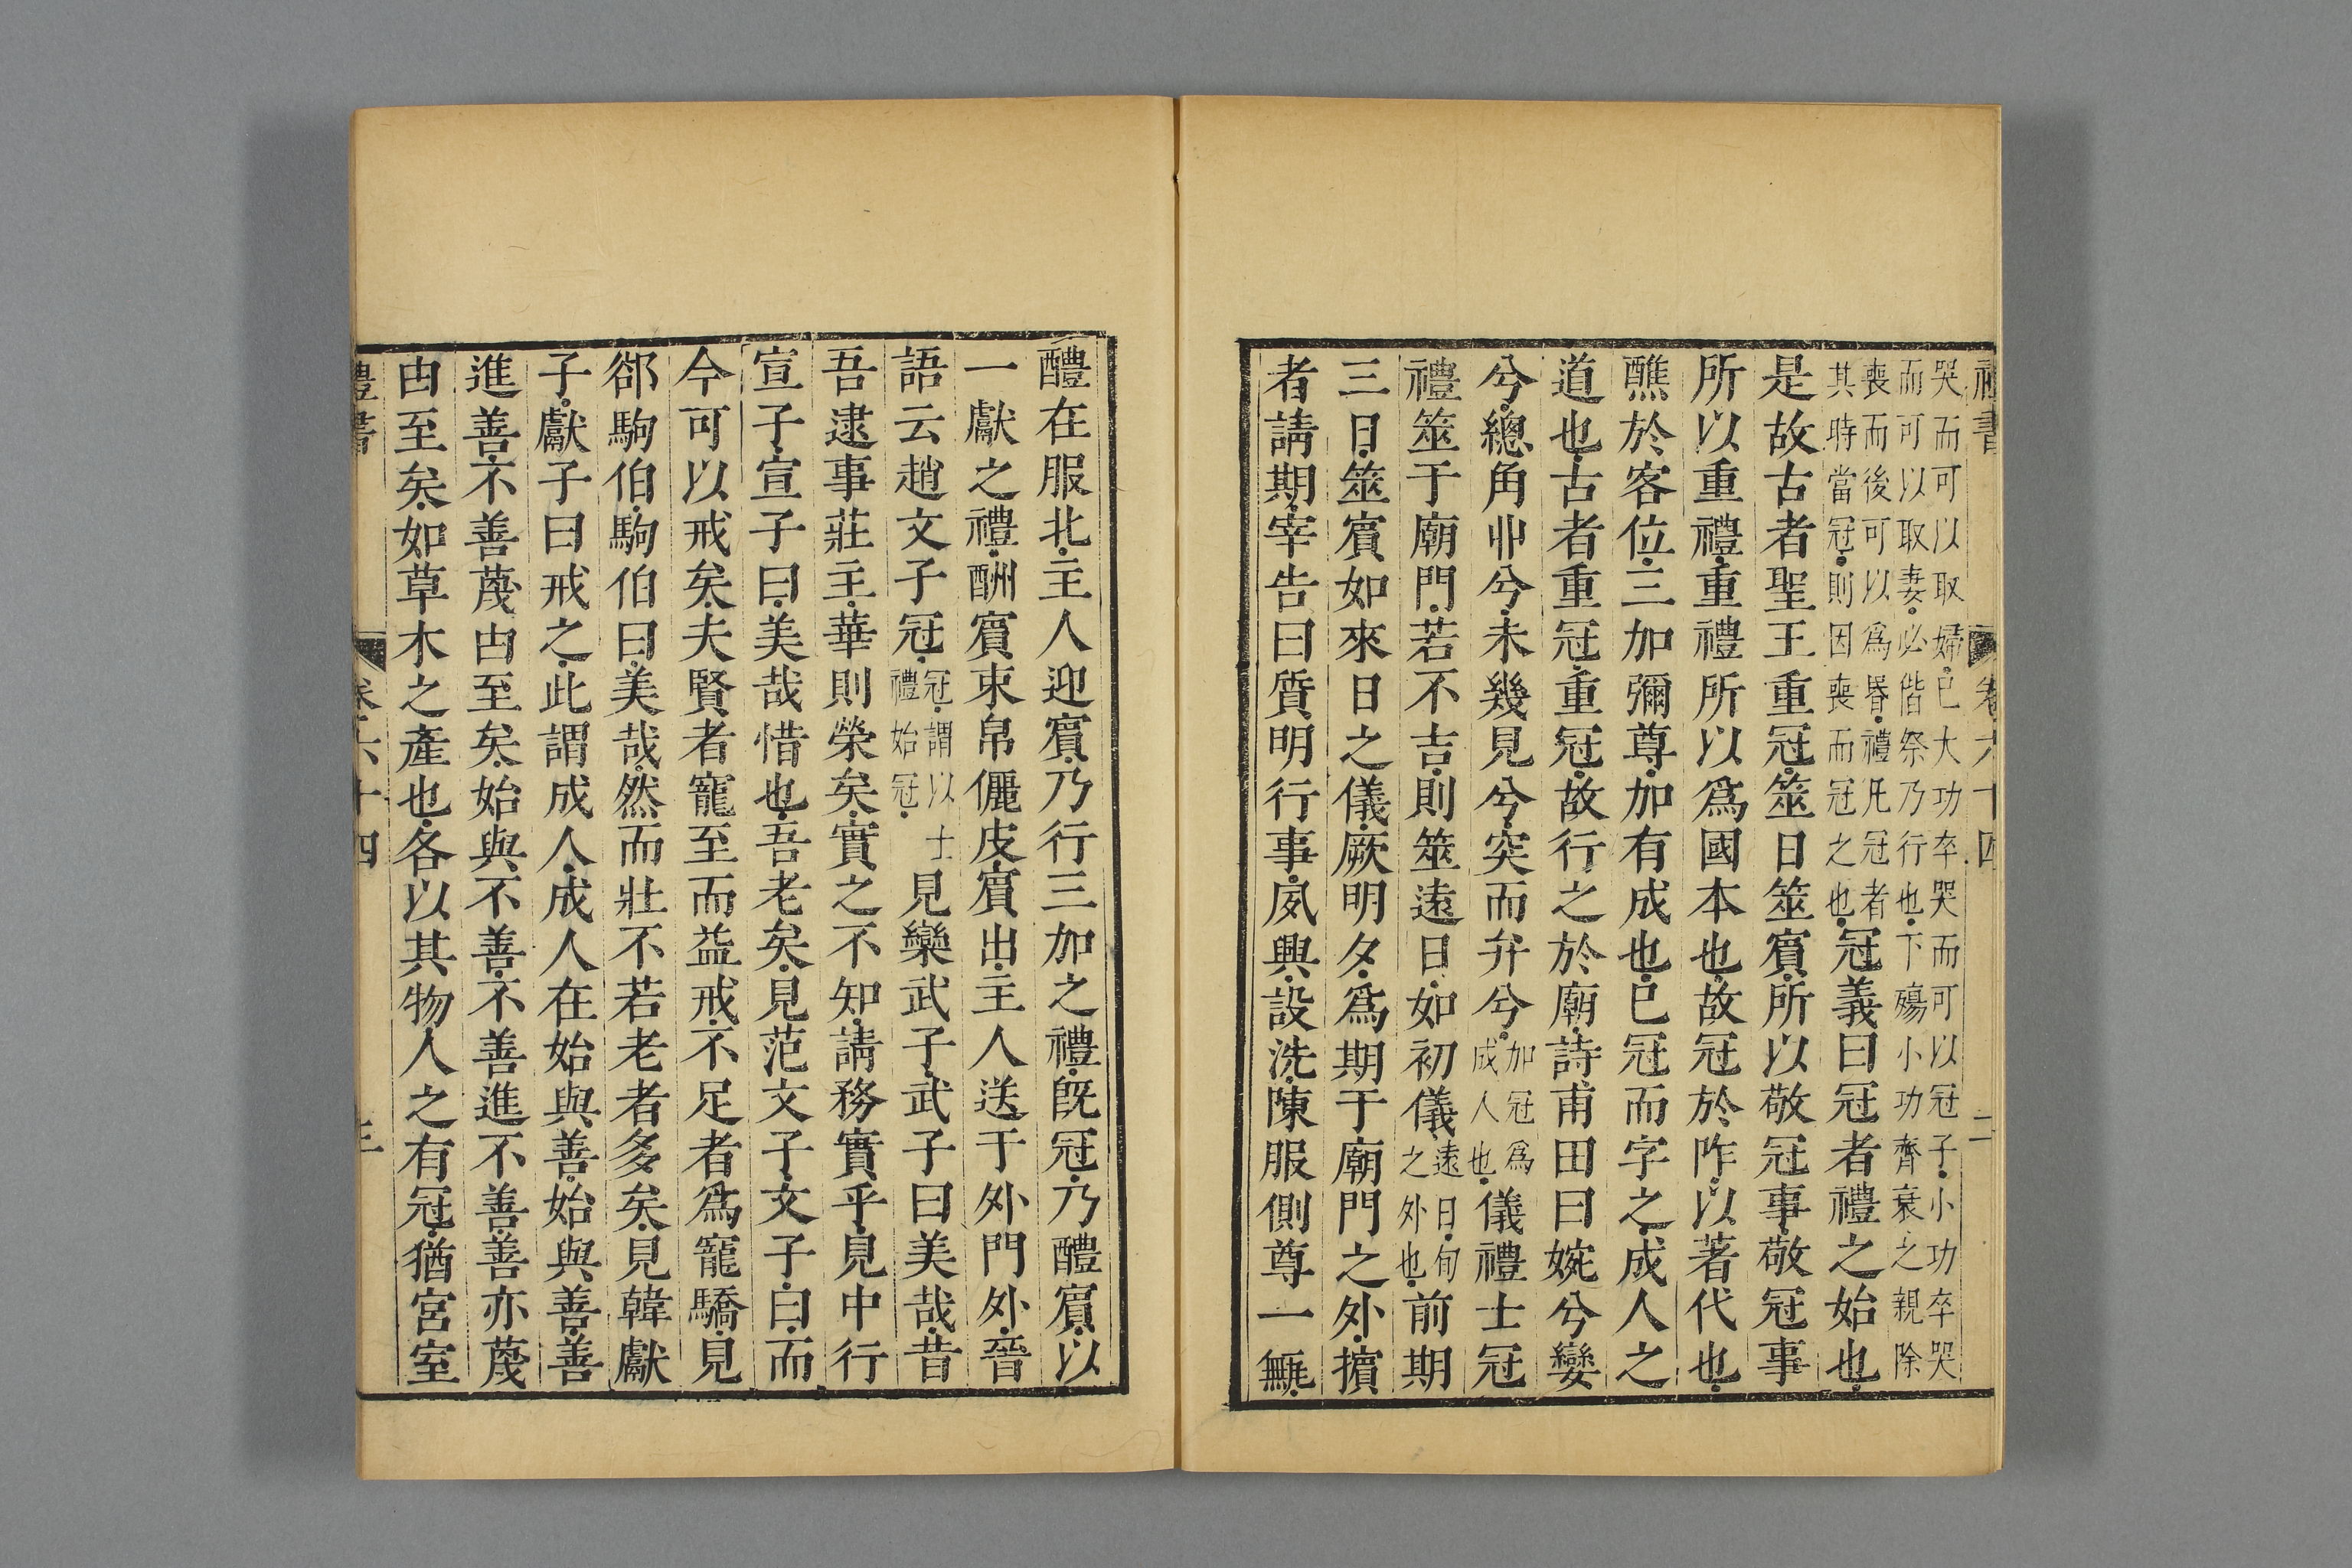 禮書 卷六十四 二
哭而可以取婦已大功卒哭而可以冠子小功卒哭
而可以取妻必偕祭乃行也下殤小功齊衰之親除
喪而後可以爲昏禮凡冠者
其時當冠則因喪而冠之也
冠義曰冠者禮之始也
是故古者聖王重冠筮日筮賔所以敬冠事敬冠事
所以重禮重禮所以爲國本也故冠於阼以著代也
醮於客位三加彌尊加有成也已冠而字之成人之
道也古者重冠重冠故行之於廟詩甫田曰婉兮孌
兮總角丱兮未幾見兮突而弁兮
加冠爲
成人也
儀禮士冠
禮筮于廟門若不吉則筮遠日如初儀
遠日旬
之外也
前期
三日筮賔如來日之儀厥明夕爲期于廟門之外擯
者請期宰告曰質明行事夙興設洗陳服側尊一甒
醴在服北主人迎賔乃行三加之禮旣冠乃醴賔以
一獻之禮酬賔束帛儷皮賔出主人送于外門外晉
語云趙文子冠
冠謂以士
禮始冠
見欒武子武子曰美哉昔
吾逮事莊主華則榮矣實之不知請務實乎見中行
宣子宣子曰美哉惜也吾老矣見范文子文子曰而
今可以戒矣夫賢者寵至而益戒不足者爲寵驕見
郤駒伯駒伯曰美哉然而壯不若老者多矣見韓獻
子獻子曰戒之此謂成人成人在始與善始與善善
進善不善蔑由至矣始與不善不善進不善善亦蔑
由至矣如草木之產也各以其物人之有冠猶宮室
禮書 卷六十四 三